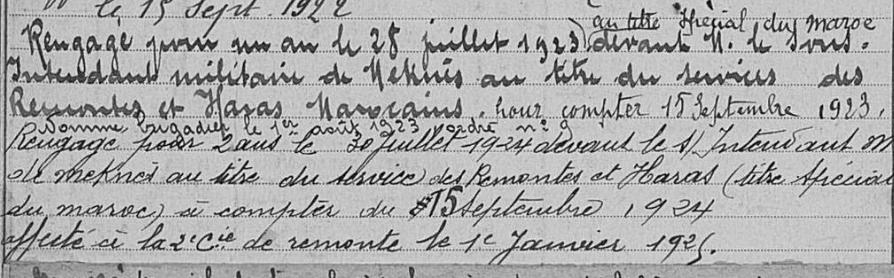 le 15 Sept. 1922
au titre Spécial du maroc
Rengagé pour un an le 28 juillet 1923 devant M. le Sous-
Intendant militaire de Meknès au titre du services des
Remontes et Haras Marocains. pour compter 15 Septembre 1923.
Nommé brigadier le 1er août 1923 ordre n° 9
Rengagé pour 2 ans le 30 juillet 1924 devant le s/Intendant M
de Meknès au titre du service des Remontes et Haras (titre spécial
du maroc) à compter du 15 Septembre 1924
affecté à la 2e Cie de remonte le 1e Janvier 1925.